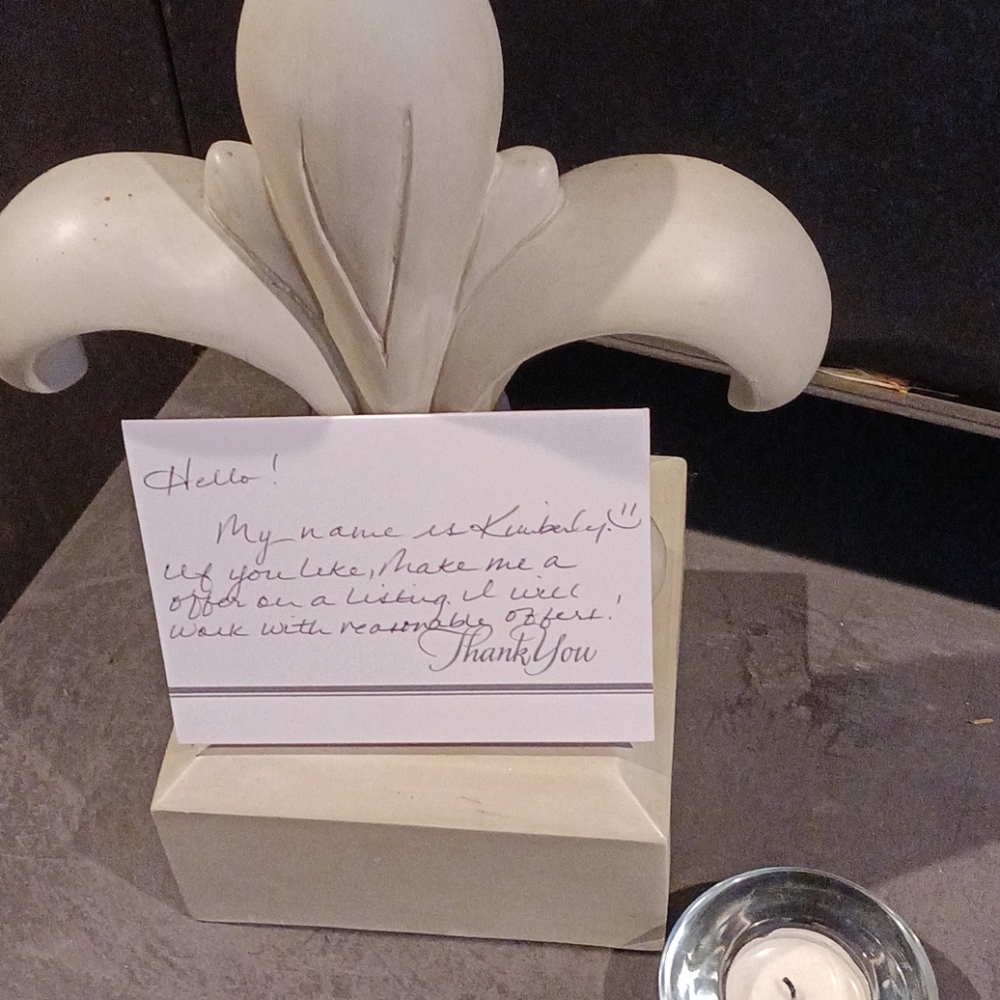 Hello!
My name is Kimberly!
If you like, make me a
offer on a listing I will
work with reasonable offers!
Thank You